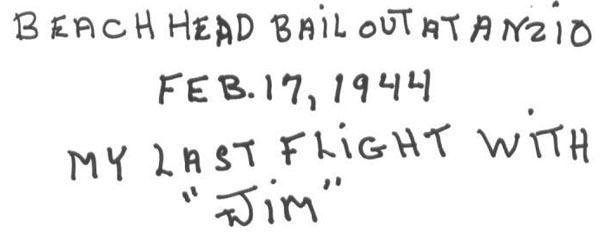 BEACH HEAD BAIL OUT AT ANZIO
FEB. 17, 1944
MY LAST FLIGHT WITH
"JIM"